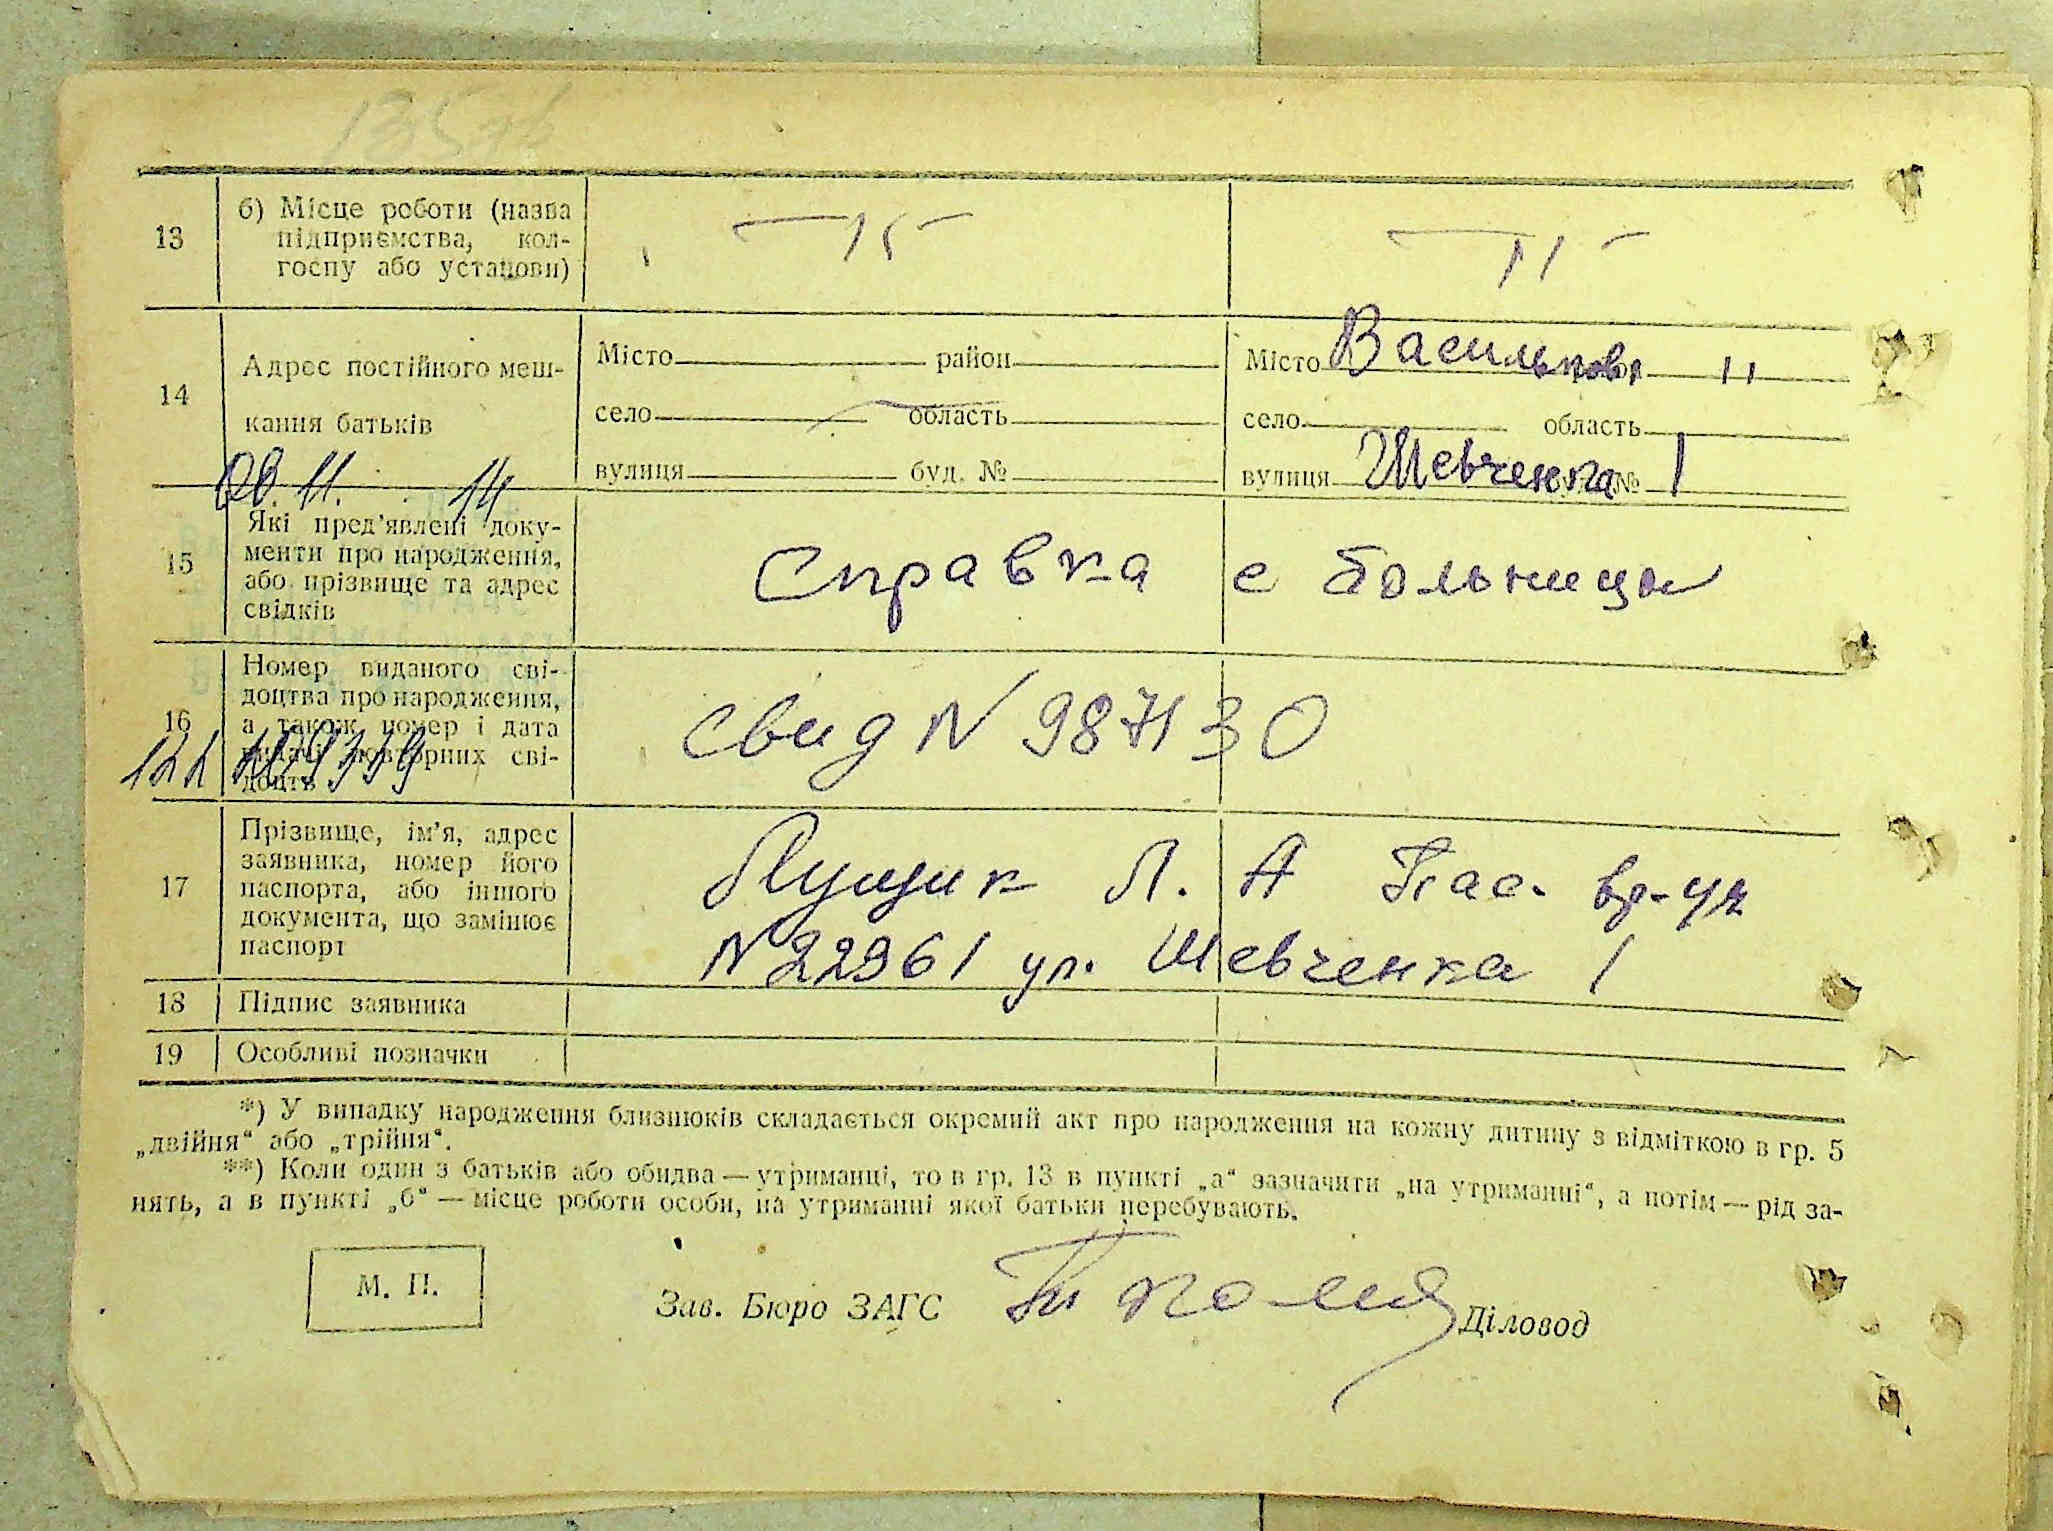 13
б) Місце роботи (назва
підприємства, кол-
госпу або установи)
14
Адрес постійного меш-
кання батьків
Місто район
село область
вулиця буд. №
Місто Васильков
село область
вулиця Шевченка № 1
15
Які пред’явлені доку-
менти про народження,
або прізвище та адрес
свідків
Справка с больницы
16
Номер виданого сві-
доцтва про народження,
а також номер і дата
видачі повторних сві-
доцтв
свид N 987130
17
Прізвище, ім’я, адрес
заявника, номер його
паспорта, або іншого
документа, що замінює
паспорт
Лущик Л. А Пас.
N 22961 ул. Шевченка 1
18 Підпис заявника
19 Особливі позначки
*) У випадку народження близнюків складається окремий акт про народження на кожну дитину з відміткою в гр. 5
„двійня“ або „трійня“.
**) Коли один з батьків або обидва — утриманці, то в гр. 13 в пункті „а“ зазначити „на утриманні“, а потім — рід за-
нять, а в пункті „б“ — місце роботи особи, на утриманні якої батьки перебувають.
М. П.
Зав. Бюро ЗАГС
Діловод